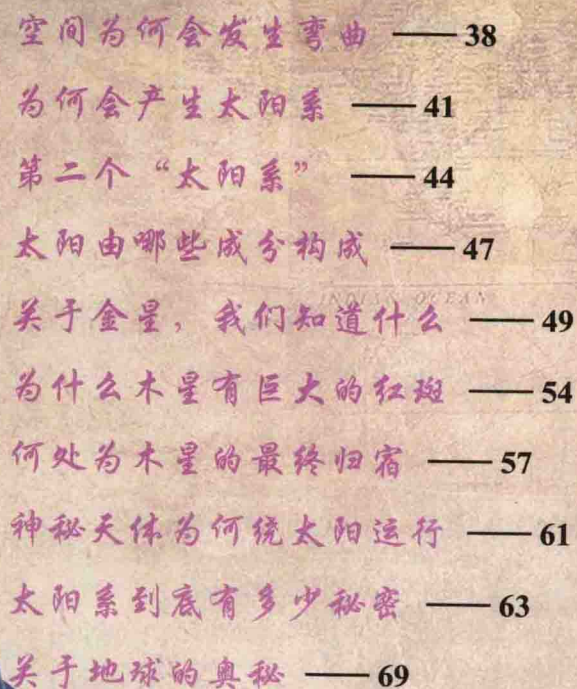 空间为何会发生弯曲 —— 38
为何会产生太阳系 —— 41
第二个“太阳系” —— 44
太阳由哪些成分构成 —— 47
INDIAN OCEAN
关于金星，我们知道什么 —— 49
为什么木星有巨大的红斑 —— 54
何处为木星的最终归宿 —— 57
神秘天体为何绕太阳运行 —— 61
太阳系到底有多少秘密 —— 63
关于地球的奥秘 —— 69